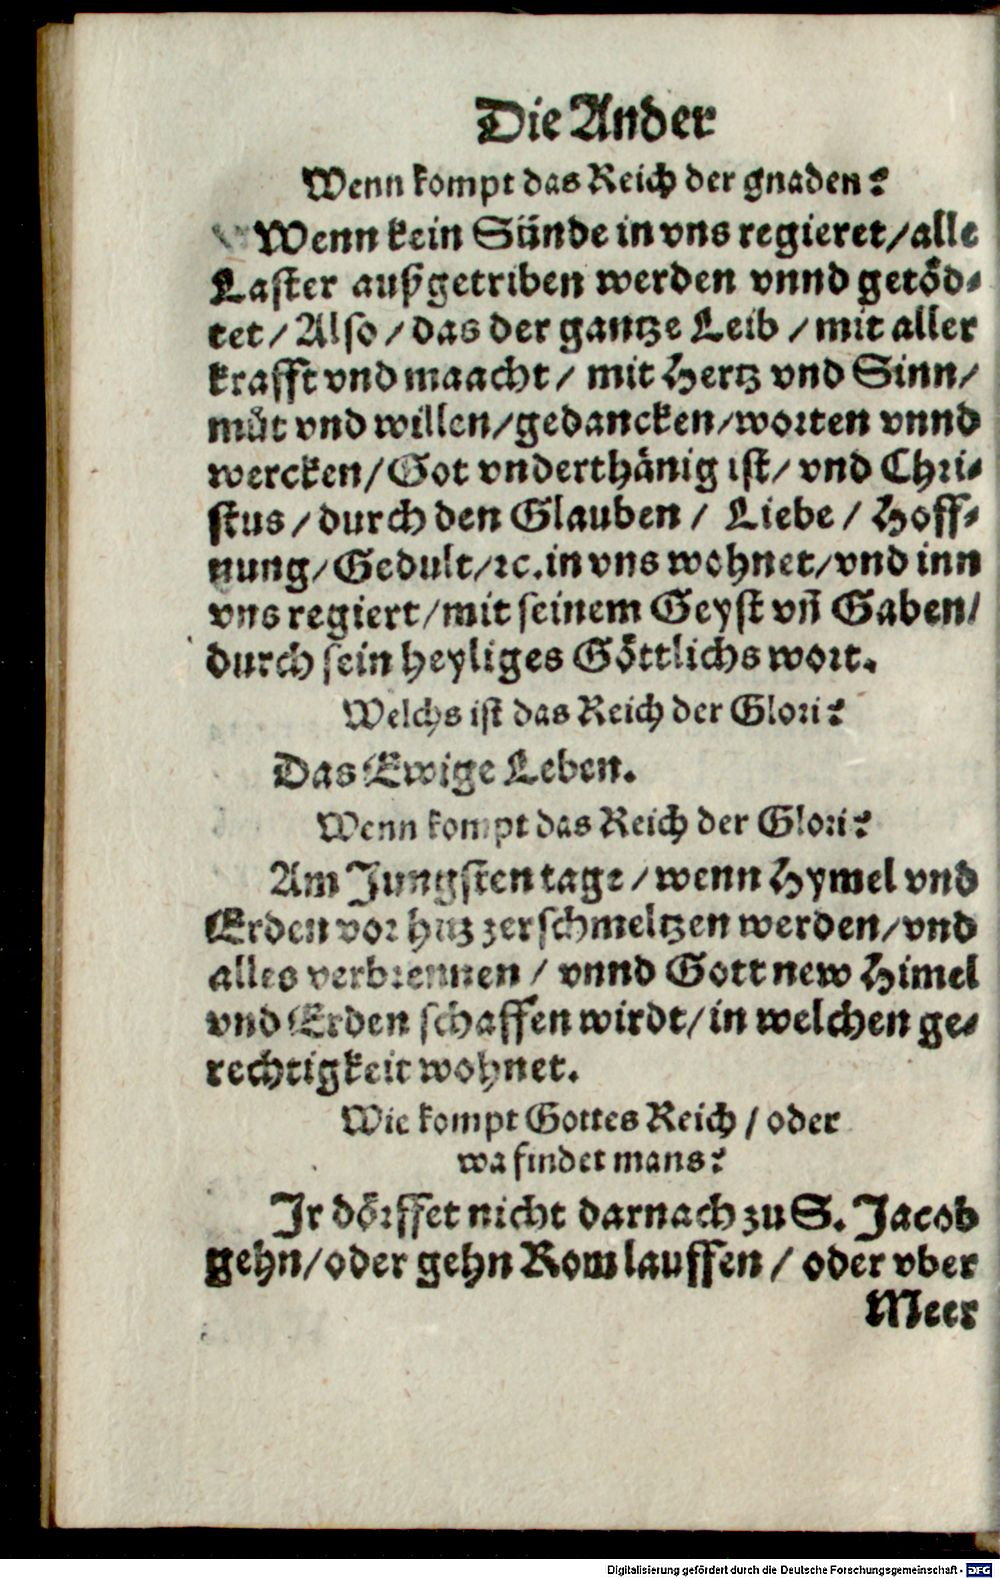 Die Ander
Wenn kompt das Reich der gnaden?
Wenn kein Sünde in vns regieret/alle
Laster außgetriben werden vnnd getöd-
tet/Also/das der gantze Leib/mit aller
krafft vnd maacht/mit Hertz vnd Sinn/
můt vnd willen/gedancken/worten vnnd
wercken/Got vnderthänig ist/vnd Chri-
stus/durch den Glauben/Liebe/Hoff-
nung/Gedult/ꝛc.in vns wohnet/vnd inn
vns regiert/mit seinem Geyst vñ Gaben/
durch sein heyliges Göttlichs wort.
Welchs ist das Reich der Glori?
Das Ewige Leben.
Wenn kompt das Reich der Glori?
Am Jungsten tage/wenn Hymel vnd
Erden vor hitz zerschmeltzen werden/vnd
alles verbrennen/vnnd Gott new Himel
vnd Erden schaffen wirdt/in welchen ge-
rechtigkeit wohnet.
Wie kompt Gottes Reich/oder
wa findet mans?
Jr dörffet nicht darnach zu S. Jacob
gehn/oder gehn Rom lauffen/oder vber
Meer
Digitalisierung gefördert durch die Deutsche Forschungsgemeinschaft - DFG